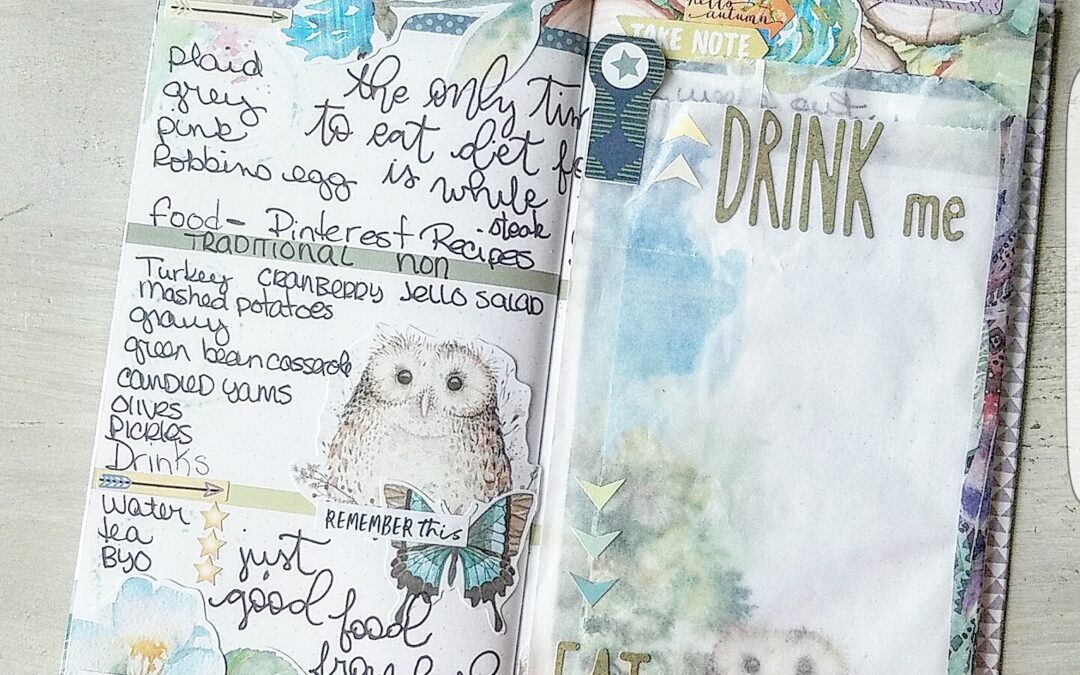 plaid
grey
pink
Robbins egg
the only tim
to eat diet fo
is while
steak
food - Pinterest Recipes
TRADITIONAL non
Turkey CRANBERRY Jello SALAD
mashed potatoes
gravy
green bean casserole
CANDIED yams
OLIVES
PICKLES
Drinks
REMEMBER this
Water
tea
BYO
just
good food
hello
autumn
TAKE NOTE
DRINK me
EAT